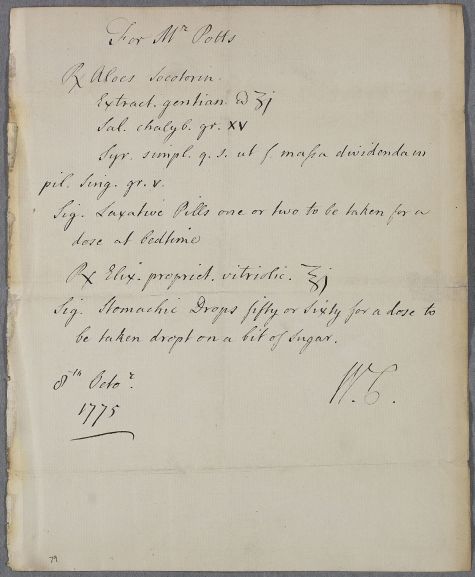 For Mr. Potts
℞ Aloes Socotorin.
Extract. gentian. āā ʒj
Sal. chalyb. gr. XV
Syr. simpl. q. s. ut f. massa dividenda in
pil. sing. gr. v.
Sig. Laxative Pills one or two to be taken for a
dose at bedtime
℞ Elix. propriet. vitriolic. ℥j
Sig. Stomachic Drops fifty or Sixty for a dose to
be taken dropt on a bit of Sugar.
8th Octor.
1775
W. C.
79